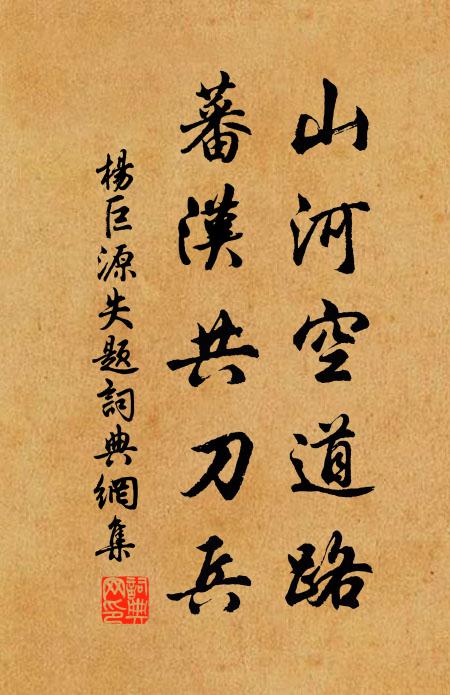 山河空道路
蕃漢共刀兵
楊巨源失題詞典網集
詞典網印